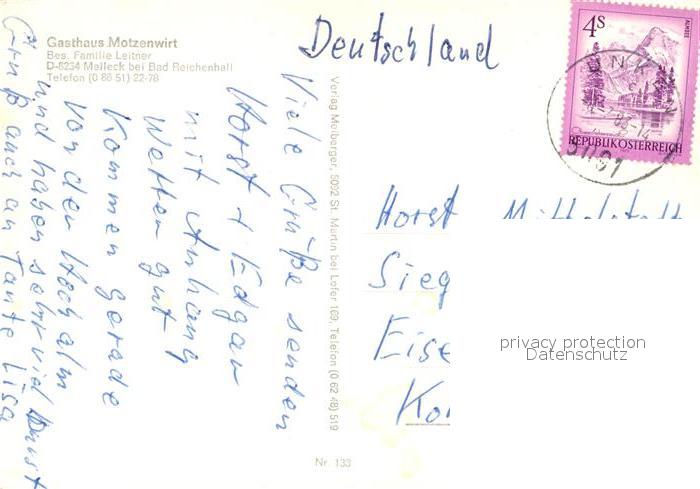 Gasthaus Motzenwirt
Bes. Familie Leitner
D-8234 Melleck bei Bad Reichenhall
Telefon (0 86 51) 22-78
Deutschland
4 S
ALMSEE
REPUBLIK ÖSTERREICH
5091
Viele Grüße senden
Horst + Edgar
mit Anhang
Wetter gut
Kommen gerade
von der Hochalm
und haben sehr viel Durst
Gruß auch an Tante Lisa
Verlag Melberger, 5092 St. Martin bei Lofer 169, Telefon (0 62 48) 519
Horst
Sieg
Eise
Ko
privacy protection
Datenschutz
Nr. 133